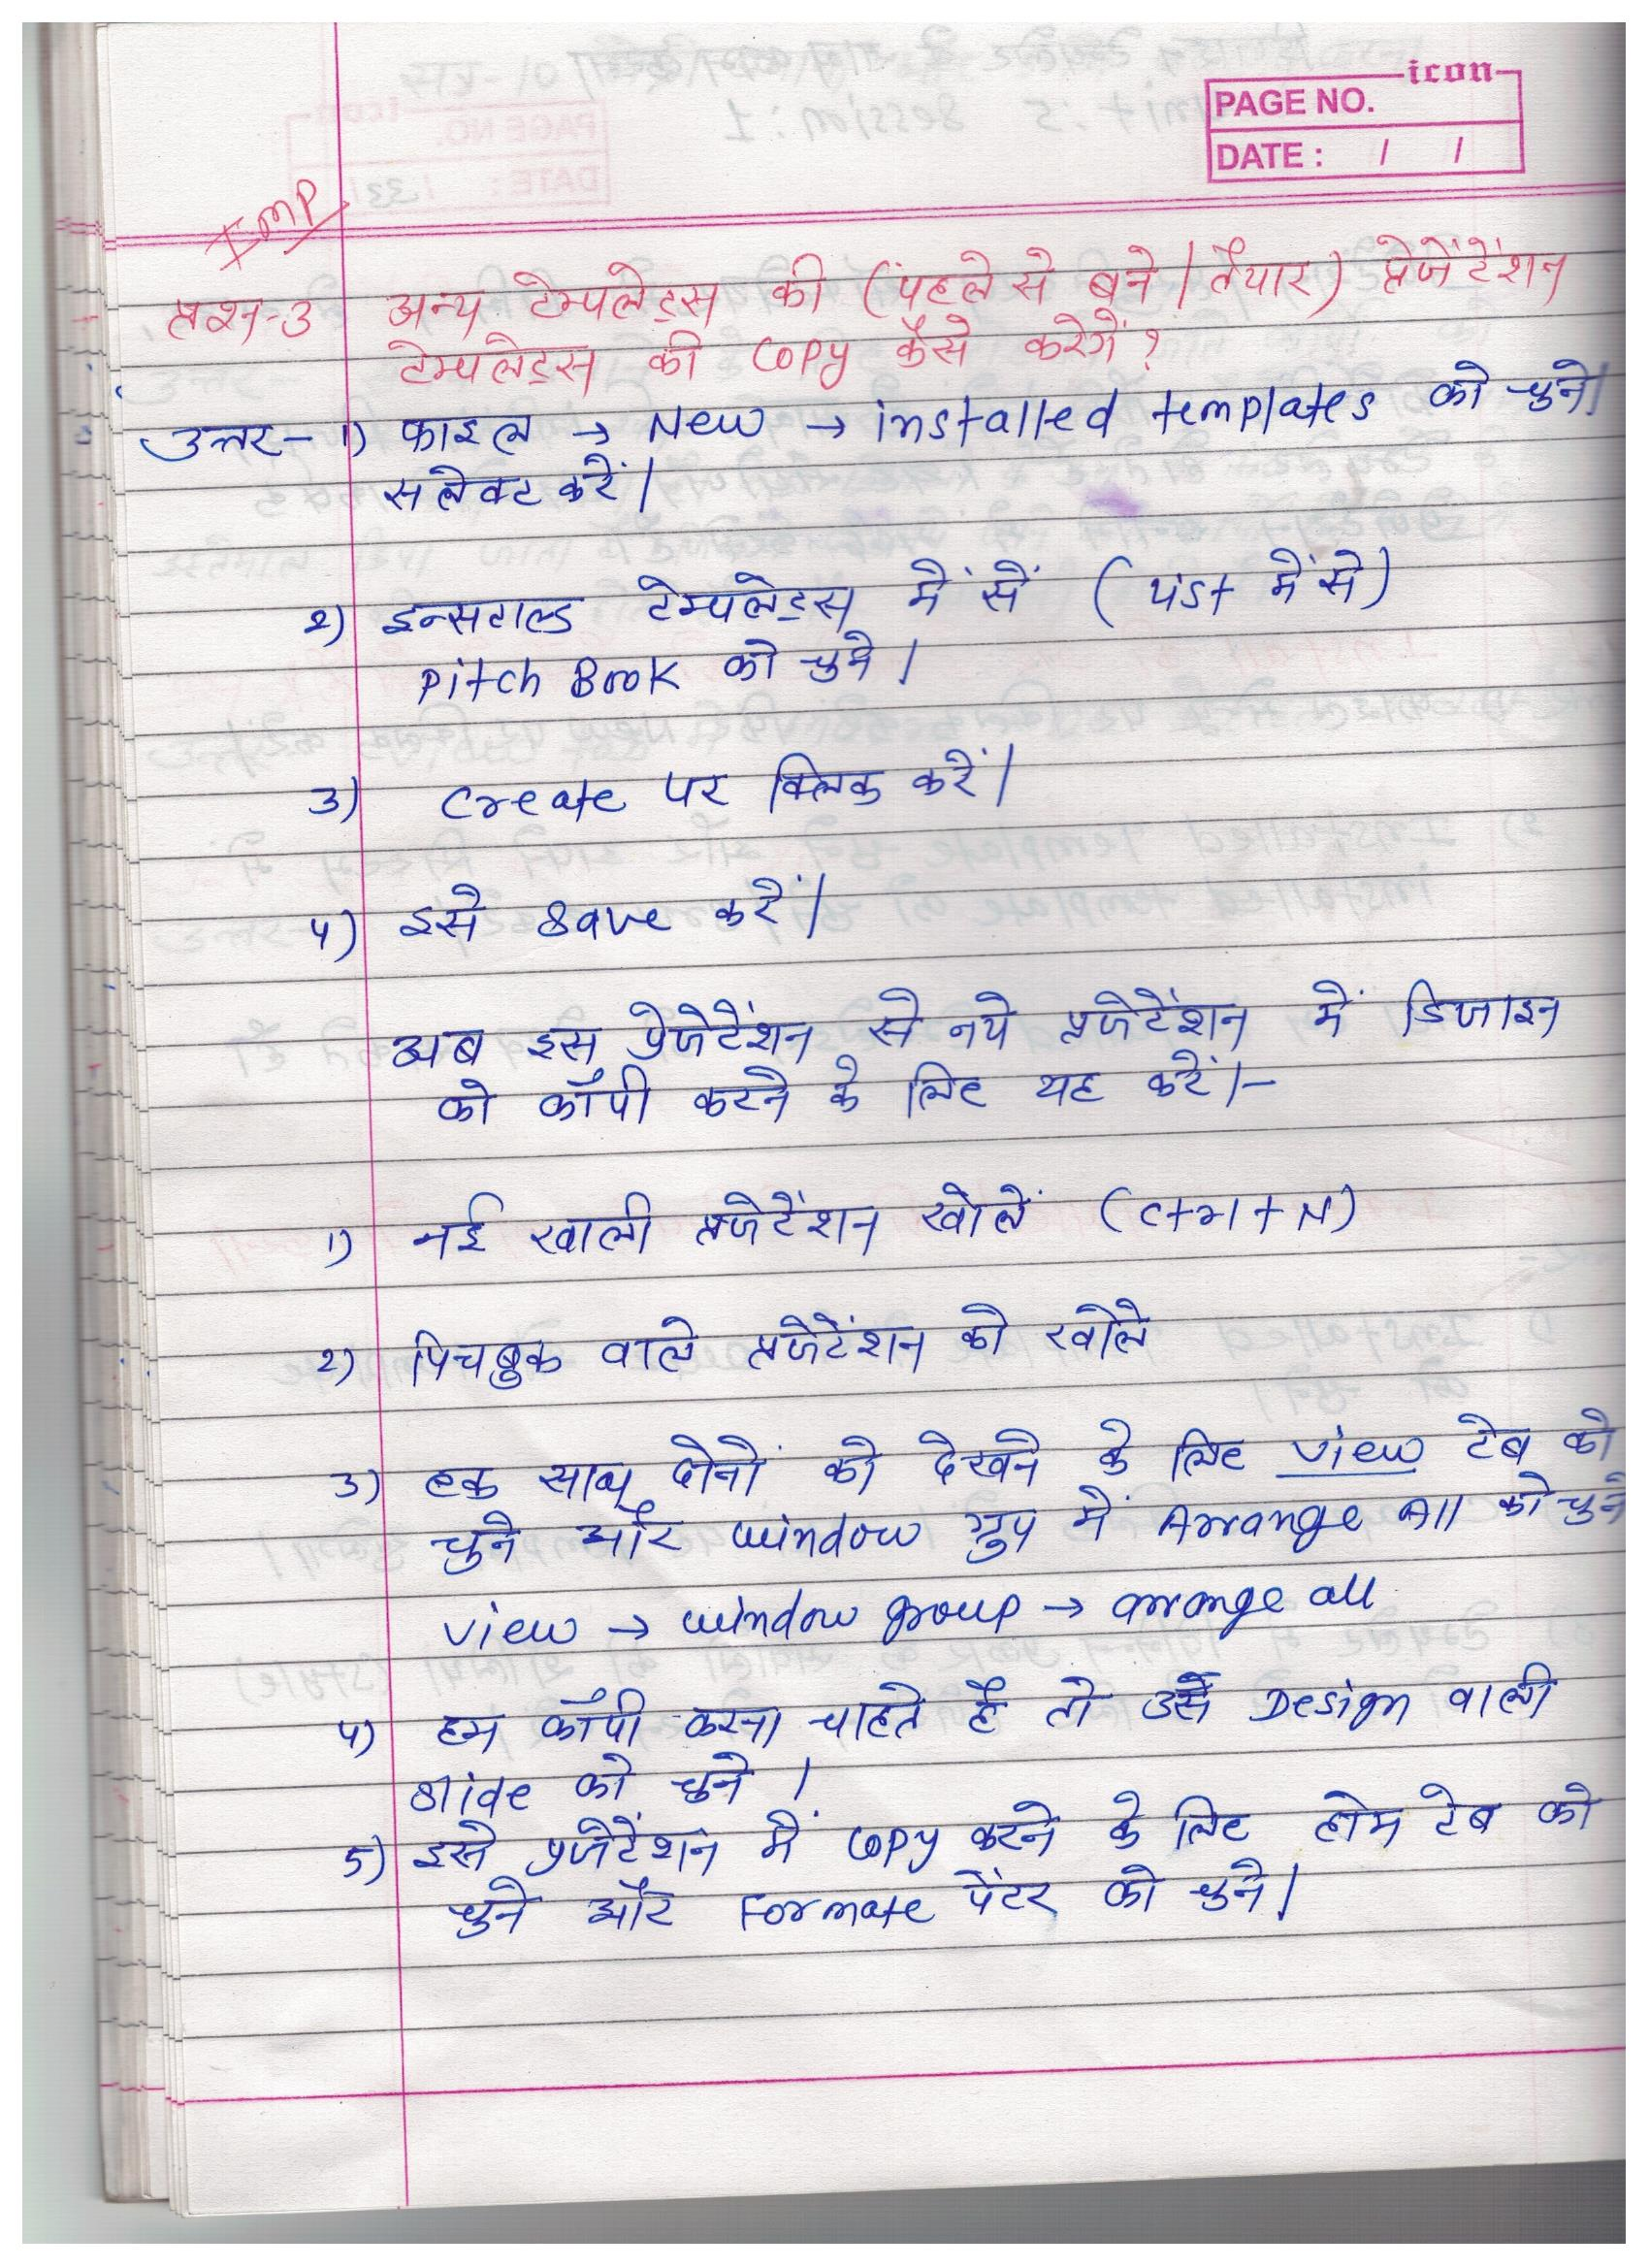 icon
PAGE NO.
DATE : / /
IMP
प्रश्न-3 अन्य टेम्पलेट्स की (पहले से बने / तैयार) प्रेजेंटेंशन
टेम्पलेट्स की Copy कैसे करेगें ?
उत्तर- 1) फाइल → New → installed templates को चुने।
सलेक्ट करें।
2) इन्सटाल्ड टेम्पलेट्स में सें ( में से)
Pitch Book को चुने ।
3) Create पर क्लिक करें।
4) इसे Save करें।
अब इस प्रेजेटेंशन से नये प्रजेटेंशन में डिजाइन
को कॉपी करने के लिए यह करें।-
1) नई खाली प्रजेटेंशन खोलें (Ctrl + N)
2) पिचबुक वाले प्रजेटेंशन को खोले
3) एक साथ दोनों को देखने के लिए View टेब को
चुने और window ग्रुप में Arrange All को चुने
View → window group → arrange all
4) हम कॉपी करना चाहते है तो उसे Design वाली
Slide को चुने ।
5) इसे प्रजेटेंशन में Copy करने के लिए होम टेब को
चुने और Formate पेंटर को चुने।